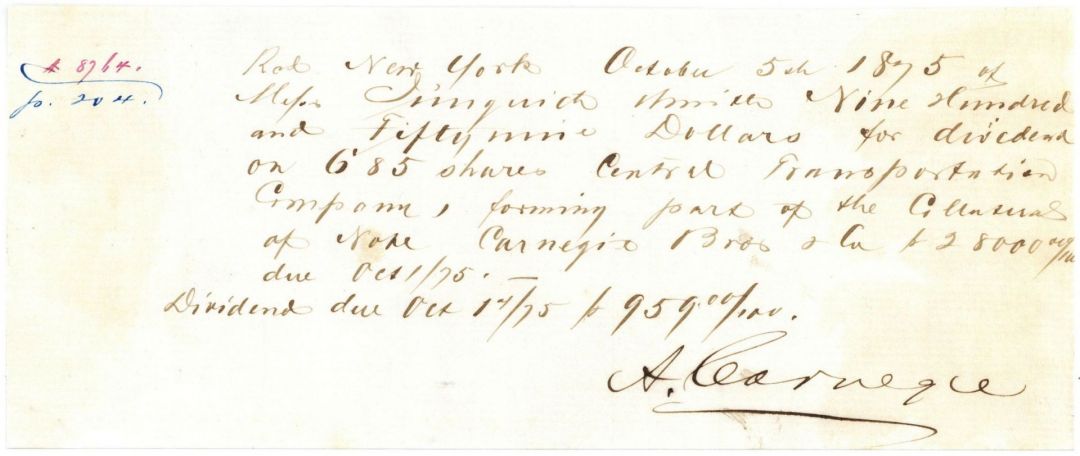 A 8764.
p. 204.
Rcd New York October 5th 1875 of
Mess Nine Hundred
and Fiftynine Dollars for dividend
on 685 shares Central Transportation
Company, forming part of the Collateral
of Note Carnegie Bros & Co $28000 00/100
due Oct 1/75. —
Dividend due Oct 1st/75 $959.00/100.
A. Carnegie